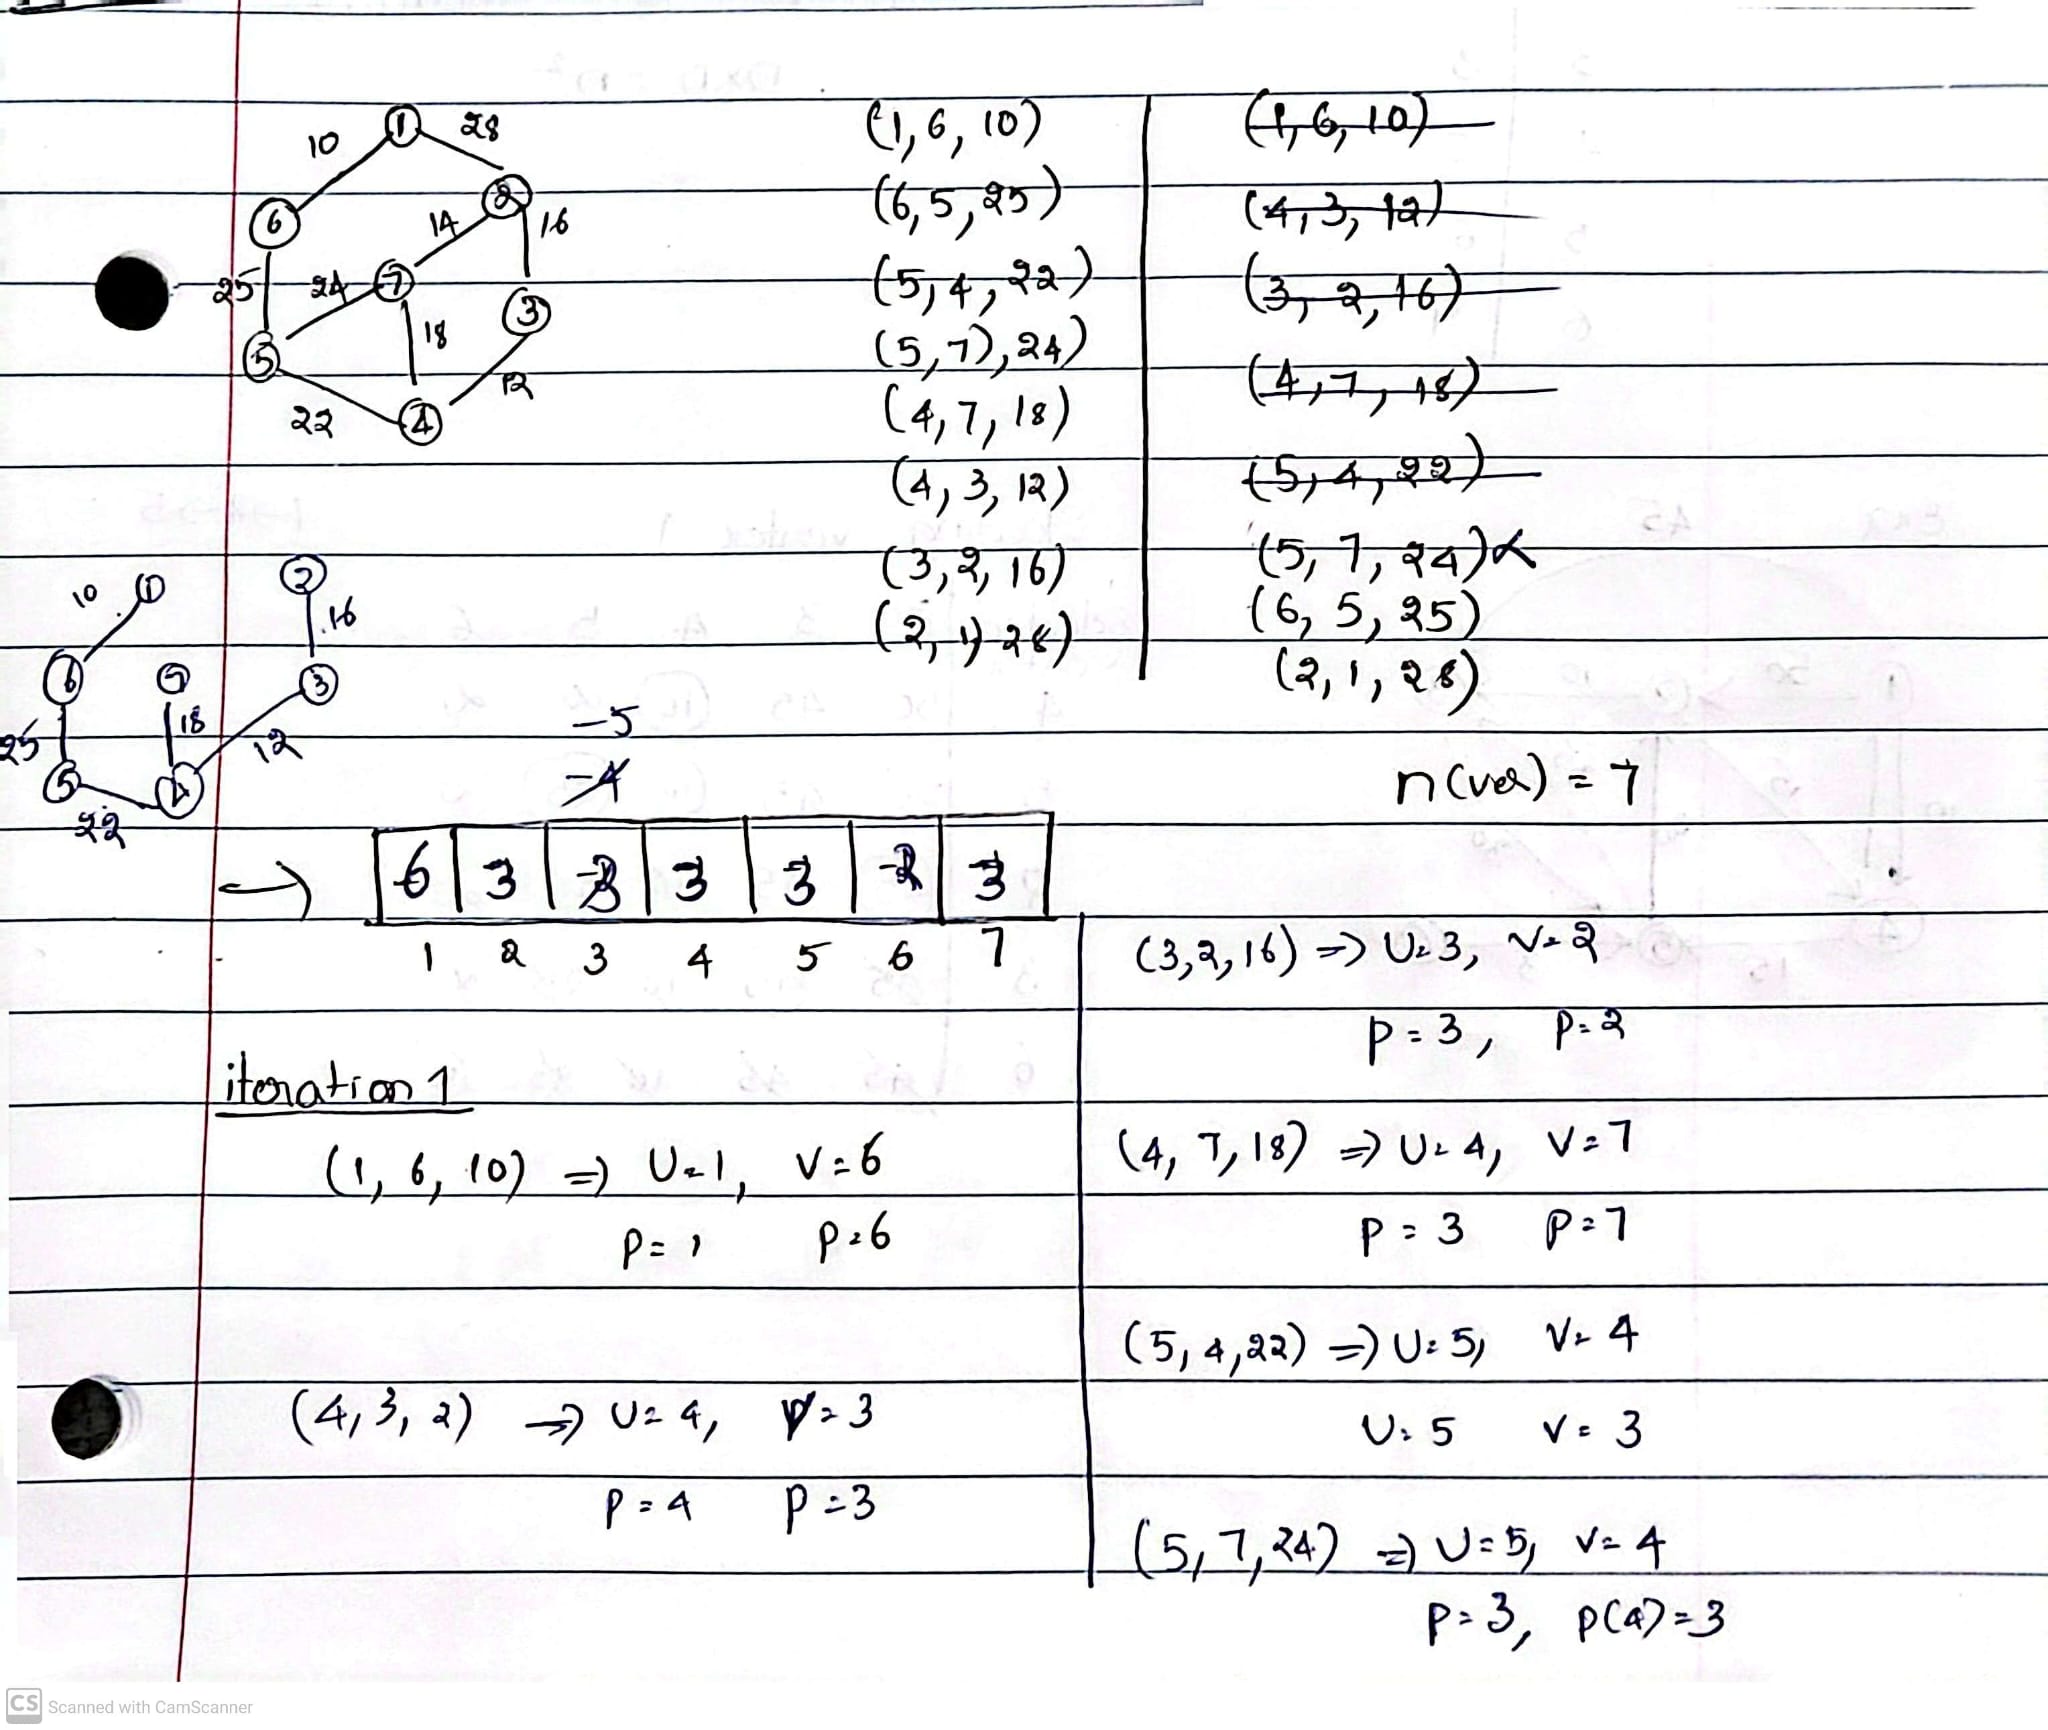 1
10
28
6
2
14
16
25
24
7
3
18
5
12
22
4
(1, 6, 10)
(6, 5, 25)
(5, 4, 22)
(5, 7), 24)
(4, 7, 18)
(4, 3, 12)
(3, 2, 16)
(2, 1) 28)
(1, 6, 10)
(4, 3, 12)
(3, 2, 16)
(4, 7, 18)
(5, 4, 22)
(5, 7, 24)
(6, 5, 25)
(2, 1, 28)
10 1 2
16
6 7 3
25 18 12
5 4
22
n(ver) = 7
-5
-4
→ 6 3 3 3 3 -2 3
1 2 3 4 5 6 7
iteration 1
(1, 6, 10) ⇒ U=1, V=6
P=1 P=6
(4, 3, 2) ⇒ U=4, V=3
P=4 P=3
(3, 2, 16) ⇒ U=3, V=2
P=3, P=2
(4, 7, 18) ⇒ U=4, V=7
P=3 P=7
(5, 4, 22) ⇒ U=5, V=4
U=5 V=3
(5, 7, 24) ⇒ U=5, V=4
P=3, P(4)=3
CS Scanned with CamScanner